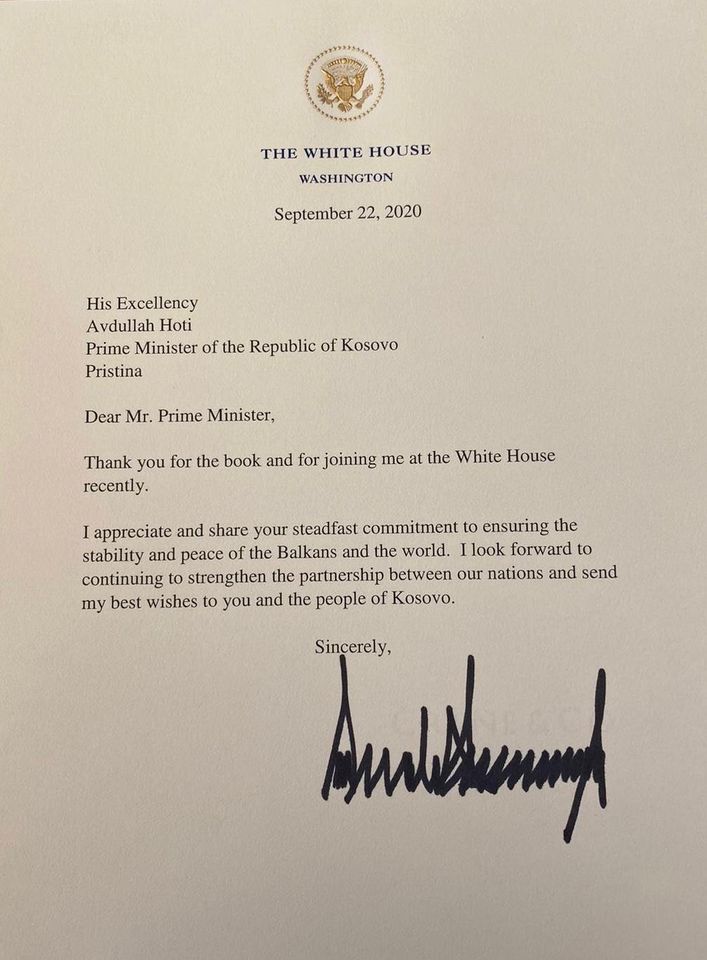 THE WHITE HOUSE
WASHINGTON
September 22, 2020
His Excellency
Avdullah Hoti
Prime Minister of the Republic of Kosovo
Pristina
Dear Mr. Prime Minister,
Thank you for the book and for joining me at the White House
recently.
I appreciate and share your steadfast commitment to ensuring the
stability and peace of the Balkans and the world. I look forward to
continuing to strengthen the partnership between our nations and send
my best wishes to you and the people of Kosovo.
Sincerely,